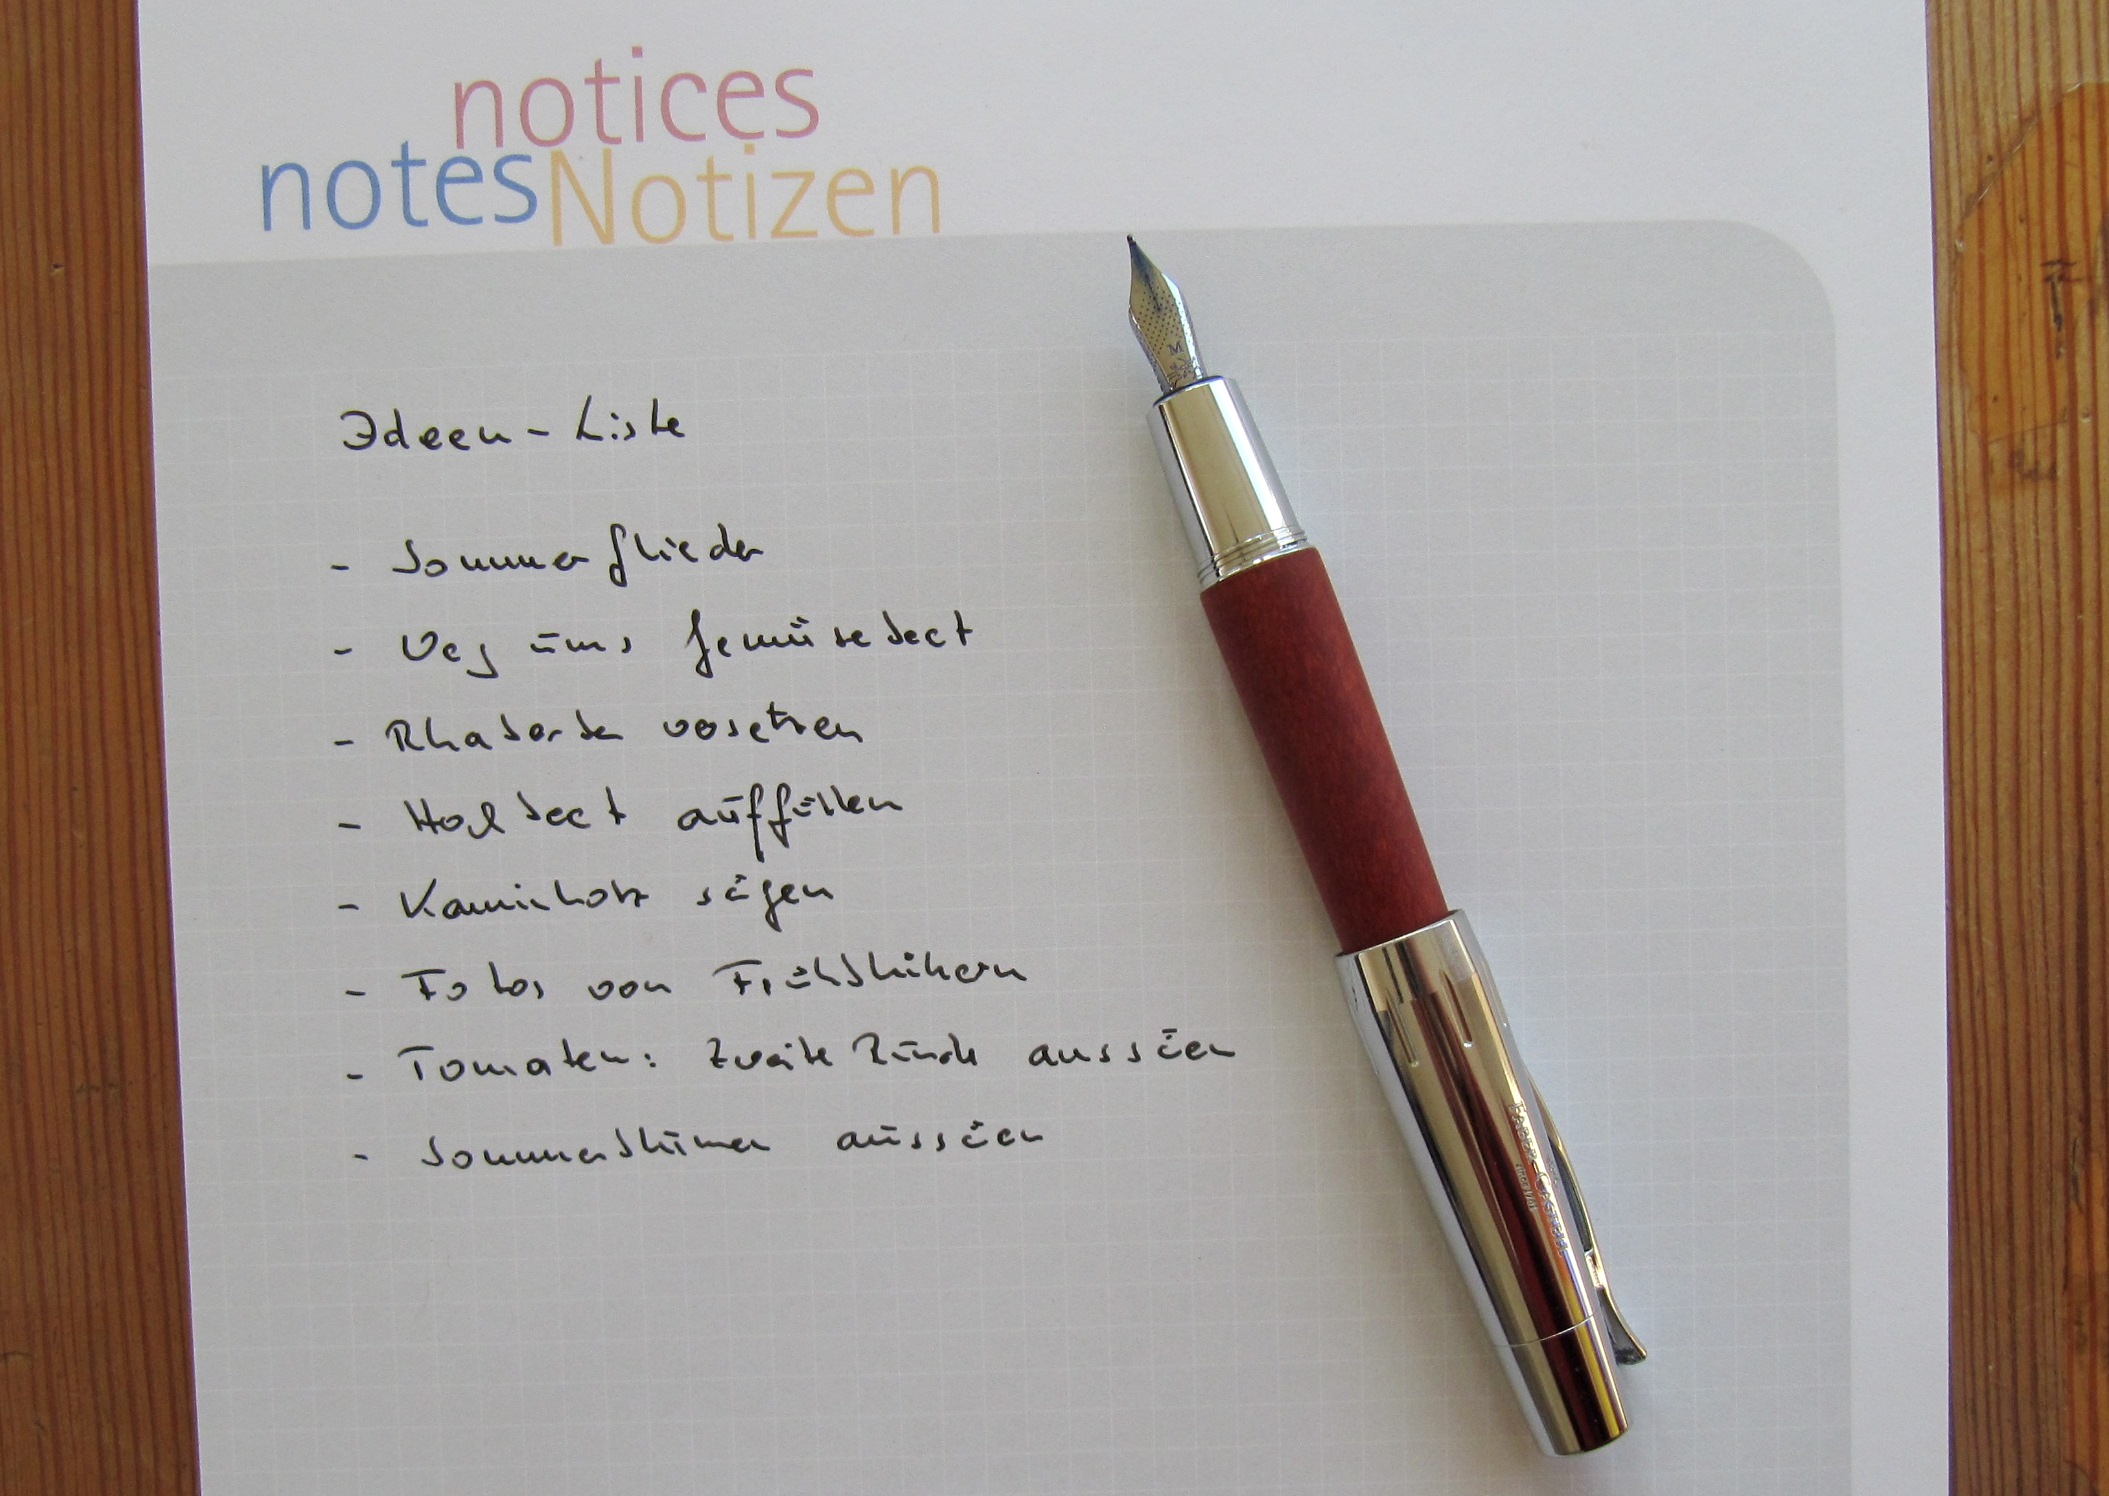 notices
notes Notizen
Ideen-Liste
- Sommerflieder
- Weg ums Gemüsebeet
- Rhabarber vorsetzen
- Hochbeet auffüllen
- Kaminholz sägen
- Fotos von Frühblühern
- Tomaten: zweite Runde aussäen
- Sommerblumen aussäen
M
FABER-CASTELL